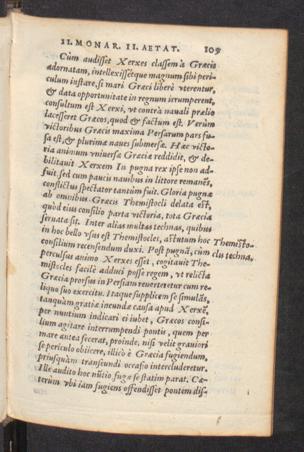 II. MONAR. II. AETAT. 109
Cùm audisset Xerxes classem à Græcis
adornatam, intellexissetque magnum sibi peri-
culum instare, si mari Græci liberè vterentur,
& data opportunitate in regnum irrumperent,
consultum est Xerxi, vt contrà nauali prælio
lacesseret Græcos, quod & factum est. Verùm
victoribus Græcis maxima Persarum pars fu-
sa est, & plurimæ naues submersæ. Hæc victo-
ria animum vniuersæ Græciæ reddidit, & de-
bilitauit Xerxem In pugna rex ipse non ad-
fuit, sed cum paucis nauibus in littore remanēs,
conflictus spectator tantùm fuit. Gloria pugnæ
ab omnibus Græcis Themistocli delata est,
quòd eius consilio parta victoria, tota Græcia
seruata sit. Inter alias multas technas, quibus
in hoc bello vsus est Themistocles, astutum hoc
consilium recensendum duxi. Post pugnā, cùm
Themisto-
clis techna.
perculsus animo Xerxes esset, cogitauit The-
mistocles facilè adduci posse regem, vt relicta
Græcia prorsus in Persiam reuerteretur cum re-
liquo suo exercitu. Itaque supplicem se simulās,
tanquàm gratiæ ineundæ causa apud Xerxē,
per nuntium indicari ei iubet, Græcos consi-
lium agitare interrumpendi pontis, quem per
mare antea fecerat, proinde, nisi velit grauiori
se periculo obiicere, illicò è Græcia fugiendum,
priusquàm transeundi occasio intercluderetur.
Ille audito hoc nūtio fugæ se statim parat. Cæ-
terùm vbi iam fugiens offendisset pontem dis-